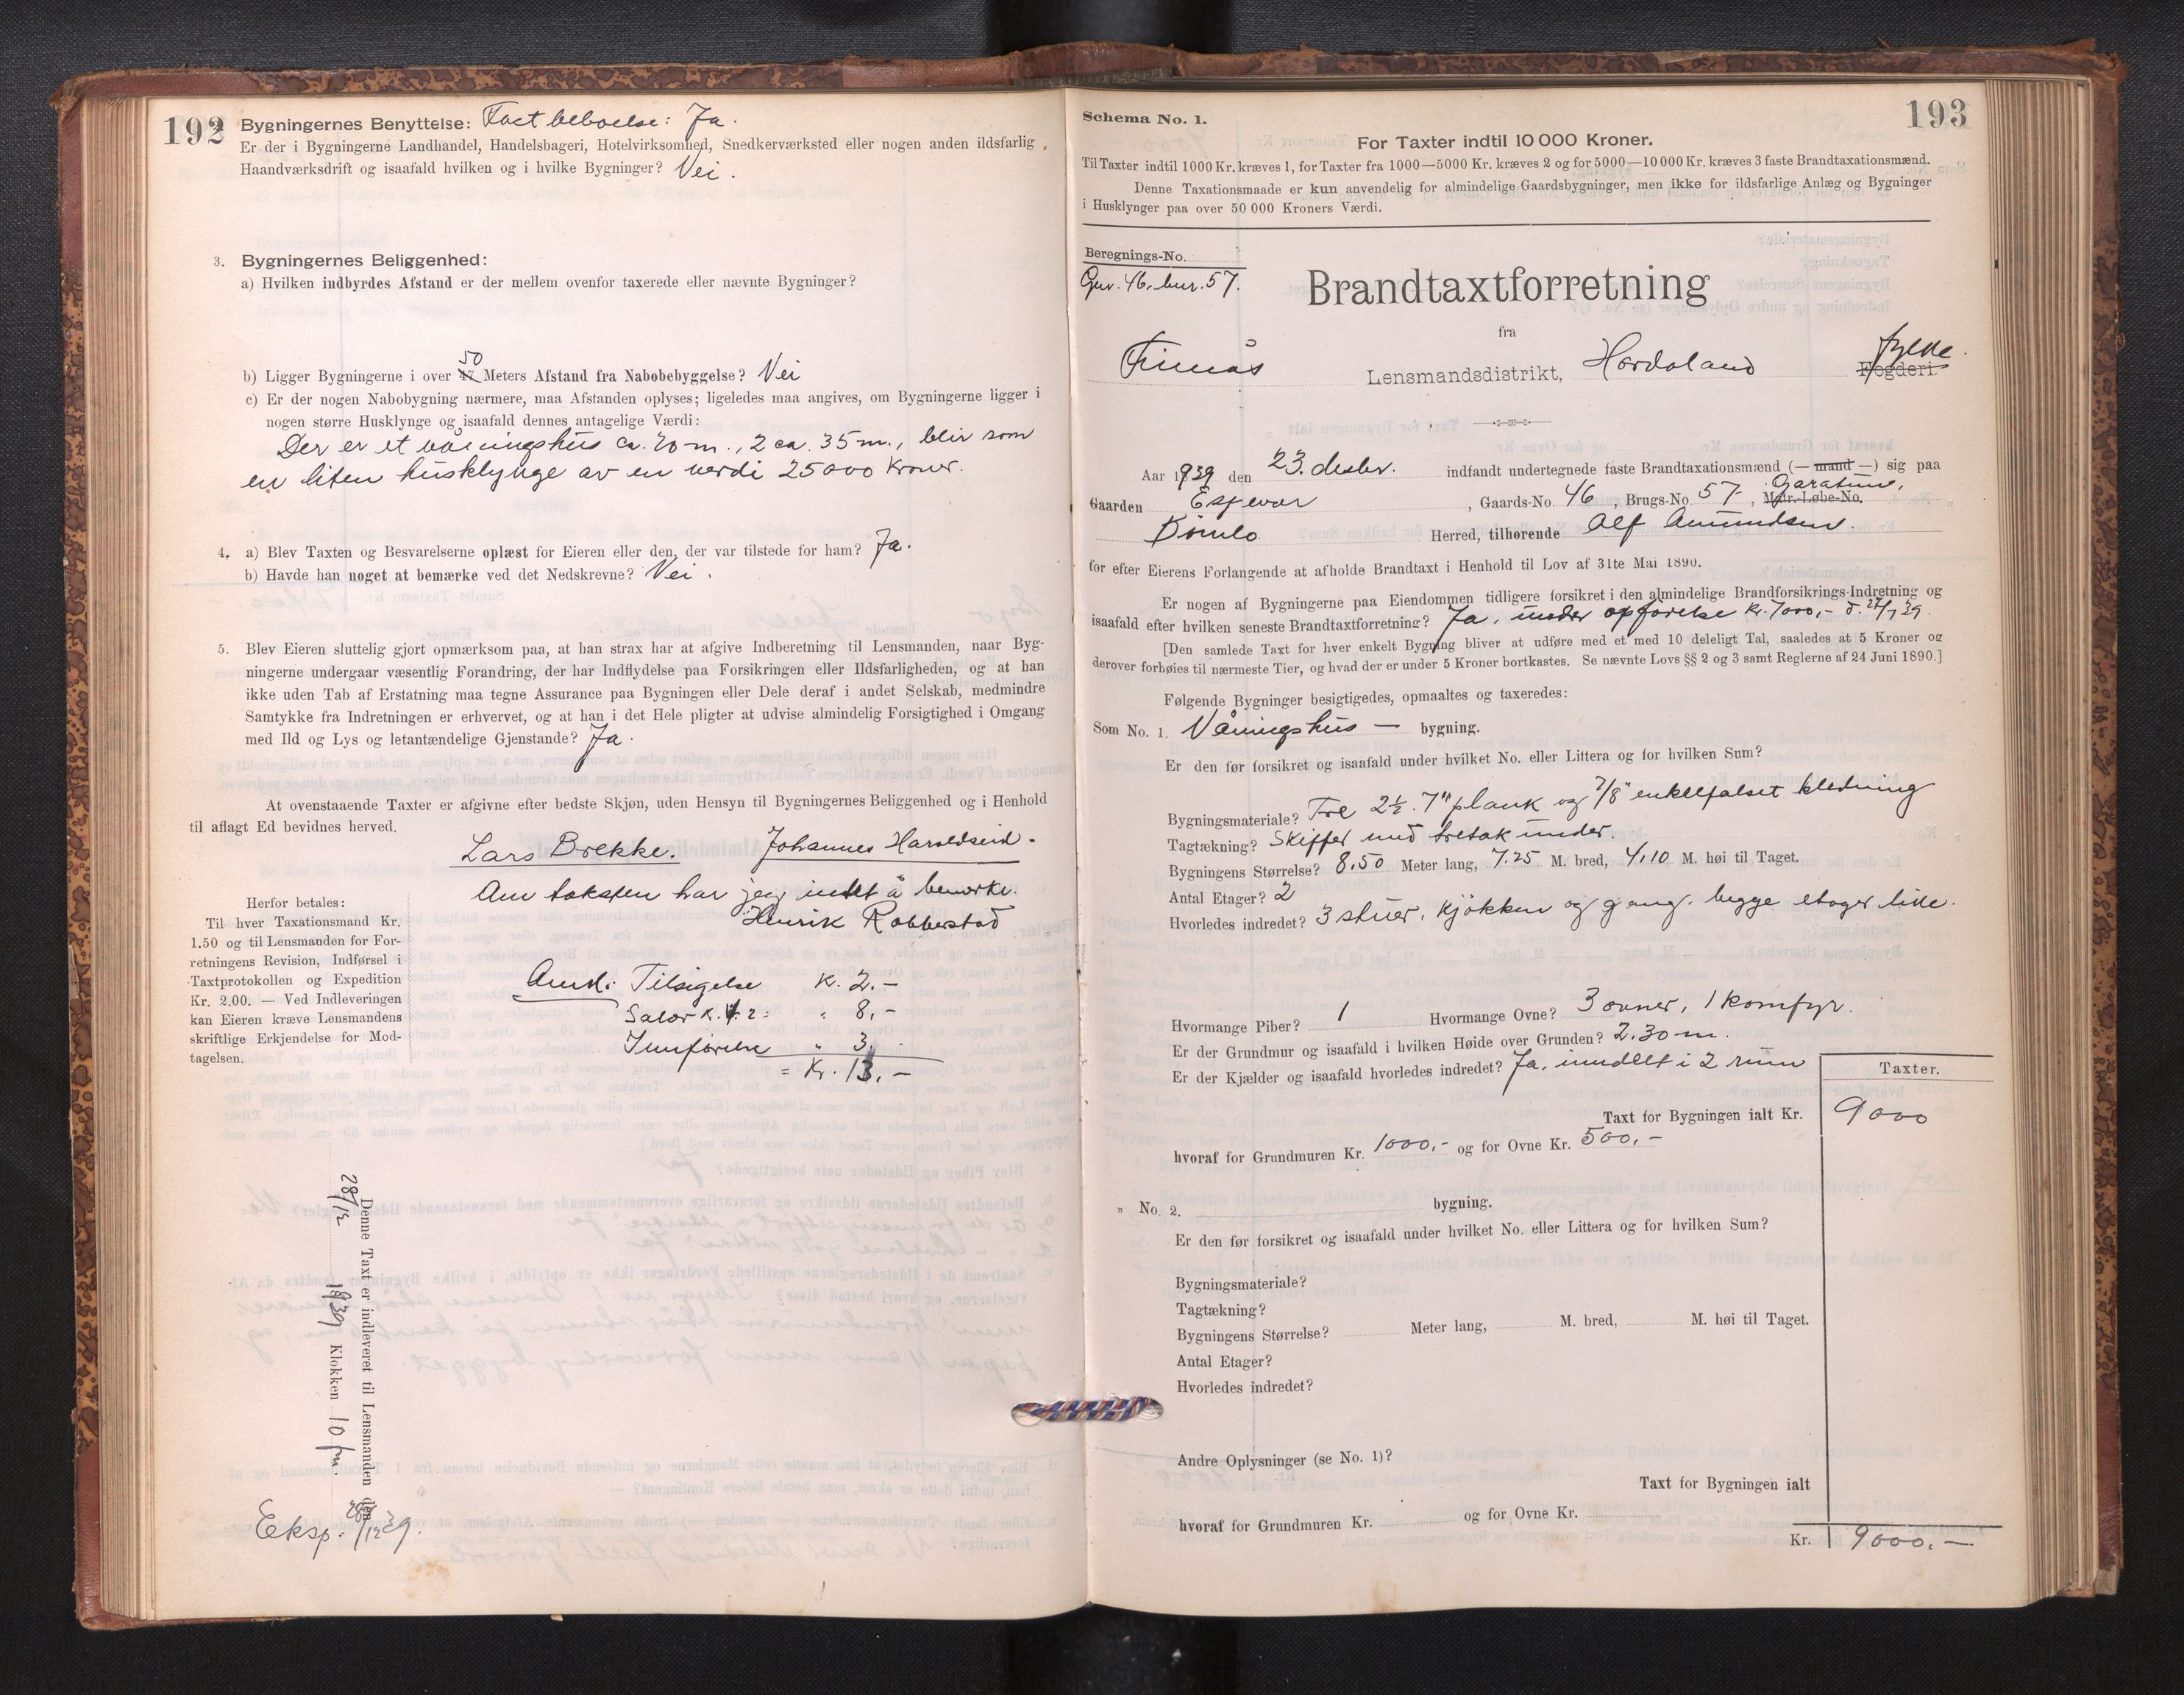 192
Bygningernes Benyttelse: Fast beboelse: Ja.
Er der i Bygningerne Landhandel, Handelsbageri, Hotelvirksomhed, Snedkerværksted eller nogen anden ildsfarlig
Haandværksdrift og isaafald hvilken og i hvilke Bygninger? Nei.
3. Bygningernes Beliggenhed:
a) Hvilken indbyrdes Afstand er der mellem ovenfor taxerede eller nævnte Bygninger?
50
b) Ligger Bygningerne i over Meters Afstand fra Nabobebyggelse? Nei
c) Er der nogen Nabobygning nærmere, maa Afstanden oplyses; ligeledes maa angives, om Bygningerne ligger i
nogen større Husklynge og isaafald dennes antagelige Værdi:
Der er et våningshus ca. 20 m., 2 ca. 35 m., blir som
en liten husklynge av en verdi 25000 kroner.
4. a) Blev Taxten og Besvarelserne oplæst for Eieren eller den, der var tilstede for ham? Ja.
b) Havde han noget at bemærke ved det Nedskrevne? Nei.
5. Blev Eieren sluttelig gjort opmærksom paa, at han strax har at afgive Indberetning til Lensmanden, naar Byg-
ningerne undergaar væsentlig Forandring, der har Indflydelse paa Forsikringen eller Ildsfarligheden, og at han
ikke uden Tab af Erstatning maa tegne Assurance paa Bygningen eller Dele deraf i andet Selskab, medmindre
Samtykke fra Indretningen er erhvervet, og at han i det Hele pligter at udvise almindelig Forsigtighed i Omgang
med Ild og Lys og letantændelige Gjenstande? Ja.
At ovenstaaende Taxter er afgivne efter bedste Skjøn, uden Hensyn til Bygningernes Beliggenhed og i Henhold
til aflagt Ed bevidnes herved.
Lars Brekke. Johannes Haraldseid.
Om taksten har jeg intet å bemerke.
Henrik Robberstad
Herfor betales:
Til hver Taxationsmand Kr.
1.50 og til Lensmanden for For-
retningens Revision, Indførsel i
Taxtprotokollen og Expedition
Kr. 2.00. — Ved Indleveringen
kan Eieren kræve Lensmandens
skriftlige Erkjendelse for Mod-
tagelsen.
Anm: Tilsigelse K. 2.-
Salær K. 4. 2: " 8,-
Innførelse " 3.
= Kr. 13.-
Denne Taxt er indleveret til Lensmanden den
28/12 1939 Klokken 10 fm.
Eksp. 28/12 39.
193
Schema No. 1.
For Taxter indtil 10 000 Kroner.
Til Taxter indtil 1000 Kr. kræves 1, for Taxter fra 1000—5000 Kr. kræves 2 og for 5000—10 000 Kr. kræves 3 faste Brandtaxationsmænd.
Denne Taxationsmaade er kun anvendelig for almindelige Gaardsbygninger, men ikke for ildsfarlige Anlæg og Bygninger
i Husklynger paa over 50 000 Kroners Værdi.
Beregnings-No.
Gnr. 46, bnr. 57.
Brandtaxtforretning
fra
Finnås Lensmandsdistrikt, Hordaland fylke. Fogderi.
Aar 1939 den 23. desbr. indfandt undertegnede faste Brandtaxationsmænd (— mand —) sig paa
Gaarden Espevær, Gaards-No. 46, Brugs-No. 57, Mtr.-Løbe-No. Garatun,
Bømlo Herred, tilhørende Alf Amundsen.
for efter Eierens Forlangende at afholde Brandtaxt i Henhold til Lov af 31te Mai 1890.
Er nogen af Bygningerne paa Eiendommen tidligere forsikret i den almindelige Brandforsikrings-Indretning og
isaafald efter hvilken seneste Brandtaxtforretning? Ja, under opførelse Kr. 7000,- d. 27/7 39.
[Den samlede Taxt for hver enkelt Bygning bliver at udføre med et med 10 deleligt Tal, saaledes at 5 Kroner og
derover forhøies til nærmeste Tier, og hvad der er under 5 Kroner bortkastes. Se nævnte Lovs §§ 2 og 3 samt Reglerne af 24 Juni 1890.]
Følgende Bygninger besigtigedes, opmaaltes og taxeredes:
Som No. 1. Våningshus — bygning.
Er den før forsikret og isaafald under hvilket No. eller Littera og for hvilken Sum?
Bygningsmateriale? Tre 2½. 7" plank og 7/8" enkeltfalset kledning
Tagtækning? Skiffer med tretak under.
Bygningens Størrelse? 8,50 Meter lang, 7.25 M. bred, 4,10 M. høi til Taget.
Antal Etager? 2
Hvorledes indredet? 3 stuer, kjøkken og gang. begge etager like.
Hvormange Piber? 1 Hvormange Ovne? 3 ovner, 1 komfyr.
Er der Grundmur og isaafald i hvilken Høide over Grunden? 2.30 m.
Er der Kjælder og isaafald hvorledes indredet? Ja, inndelt i 2 rum
Taxter.
Taxt for Bygningen ialt Kr. 9000
hvoraf for Grundmuren Kr. 1000,- og for Ovne Kr. 500,-
" No. 2. bygning.
Er den før forsikret og isaafald under hvilket No. eller Littera og for hvilken Sum?
Bygningsmateriale?
Tagtækning?
Bygningens Størrelse? Meter lang, M. bred, M. høi til Taget.
Antal Etager?
Hvorledes indredet?
Andre Oplysninger (se No. 1)?
Taxt for Bygningen ialt
hvoraf for Grundmuren Kr. og for Ovne Kr.
Kr. 9000.—